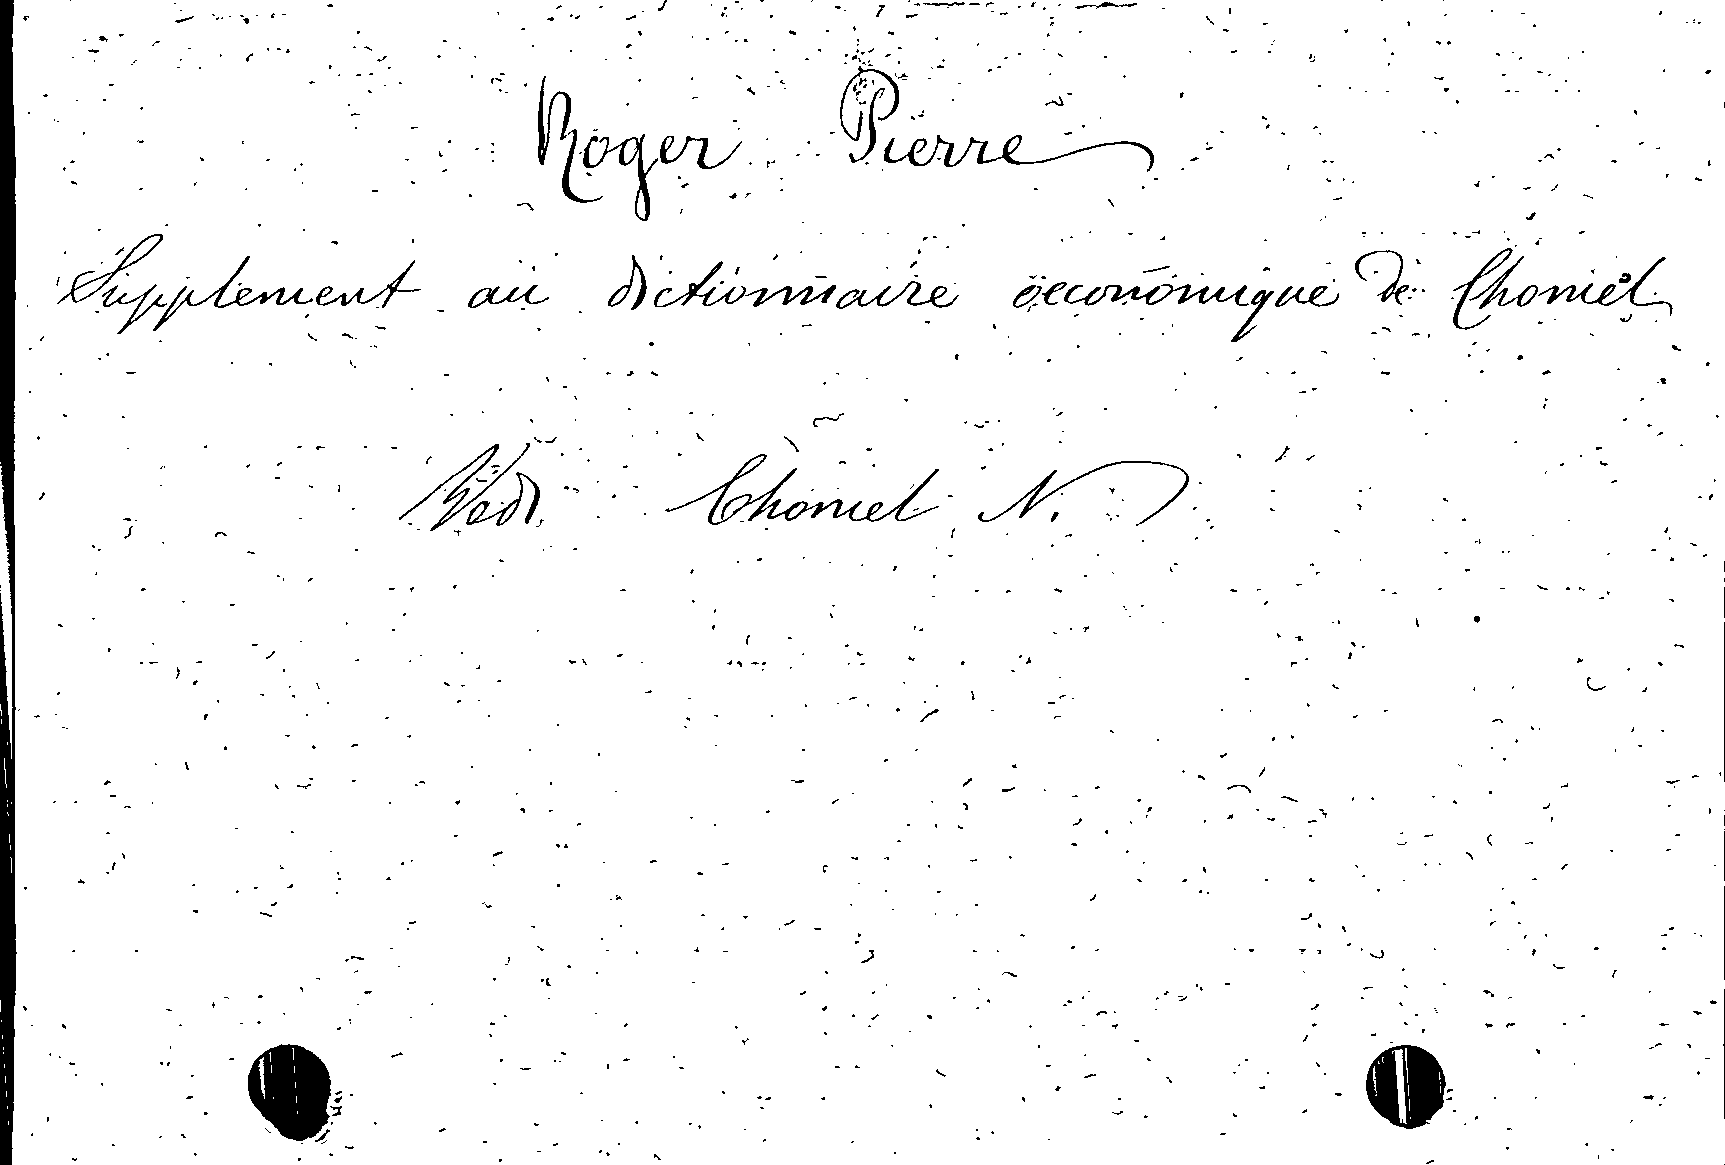 Roger Pierre
Supplement au dictionnaire œconomique de Chomel
Ved. Chomel N.